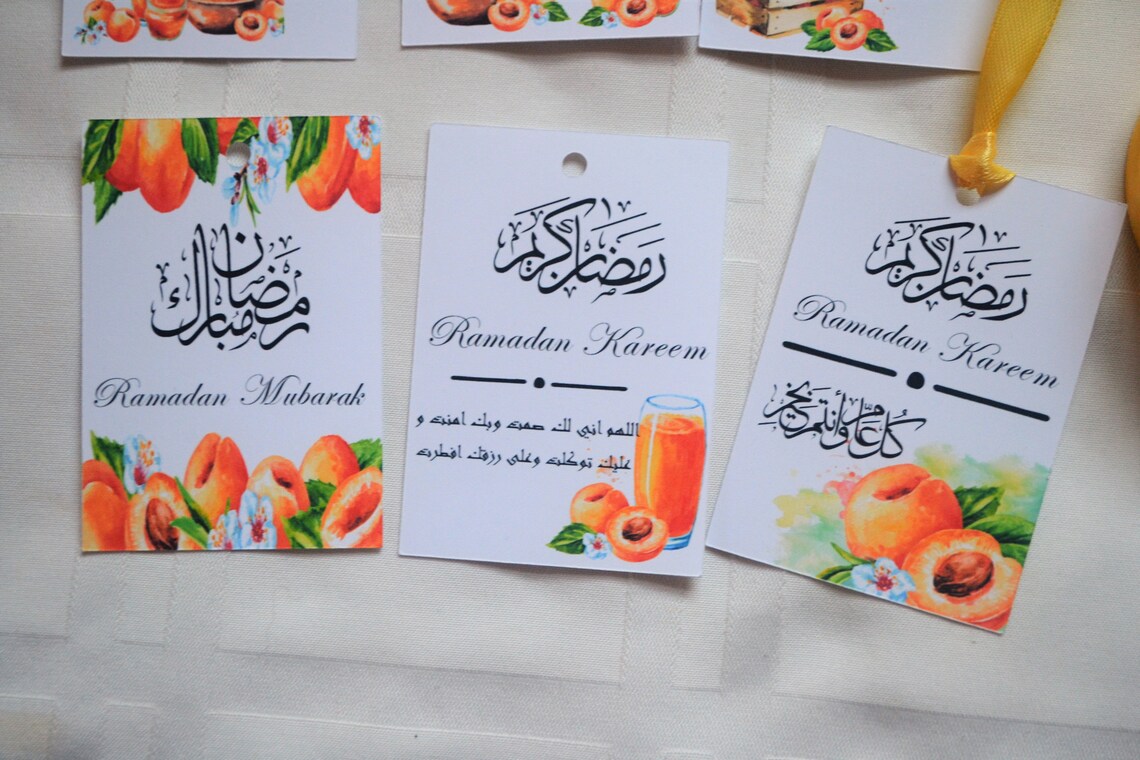 رمضان
مبارك
Ramadan Mubarak
رمضان كريم
Ramadan Kareem
اللهم اني لك صمت وبك امنت و
عليك توكلت وعلى رزقك افطرت
رمضان كريم
Ramadan Kareem
كل عام وأنتم بخير